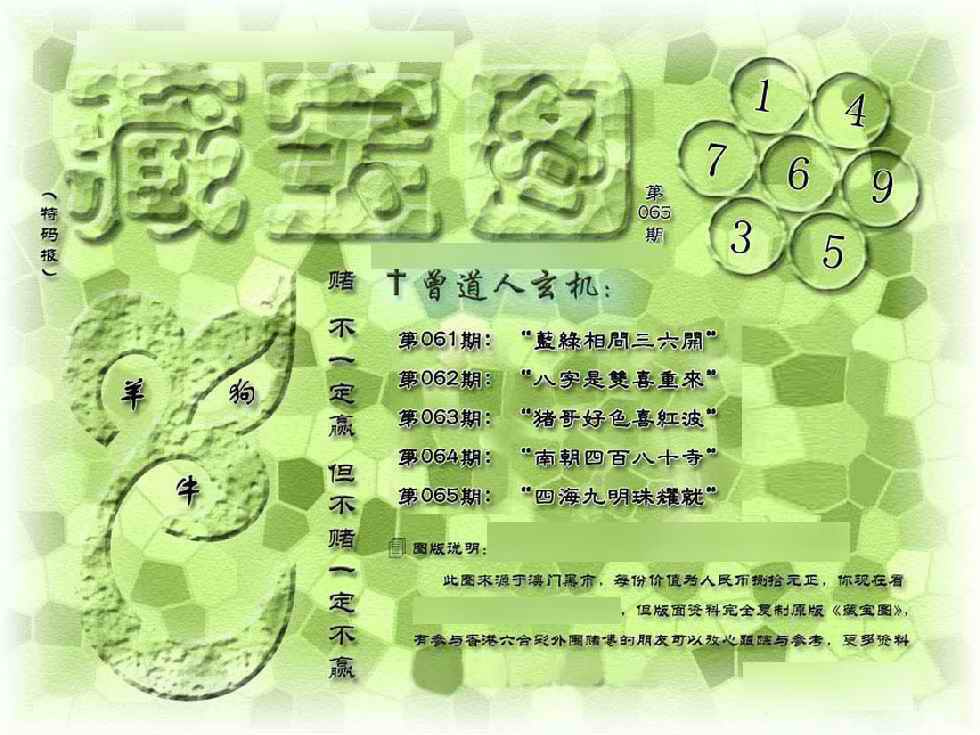 藏宝图
（特码报）
第
065
期
1
4
7
6
9
3
5
羊
狗
牛
赌不一定赢 但不赌一定不赢
曾道人玄机：
第061期：“藍綠相間三六開”
第062期：“八字是雙喜重來”
第063期：“猪哥好色喜紅波”
第064期：“南朝四百八十寺”
第065期：“四海九明珠耀就”
图版说明：
此图来源于澳门黑市，每份价值为人民币捌拾元正，你现在看
，但版面资料完全复制原版《藏宝图》，
有参与香港六合彩外围赌博的朋友可以放心跟踪与参考，更多资料